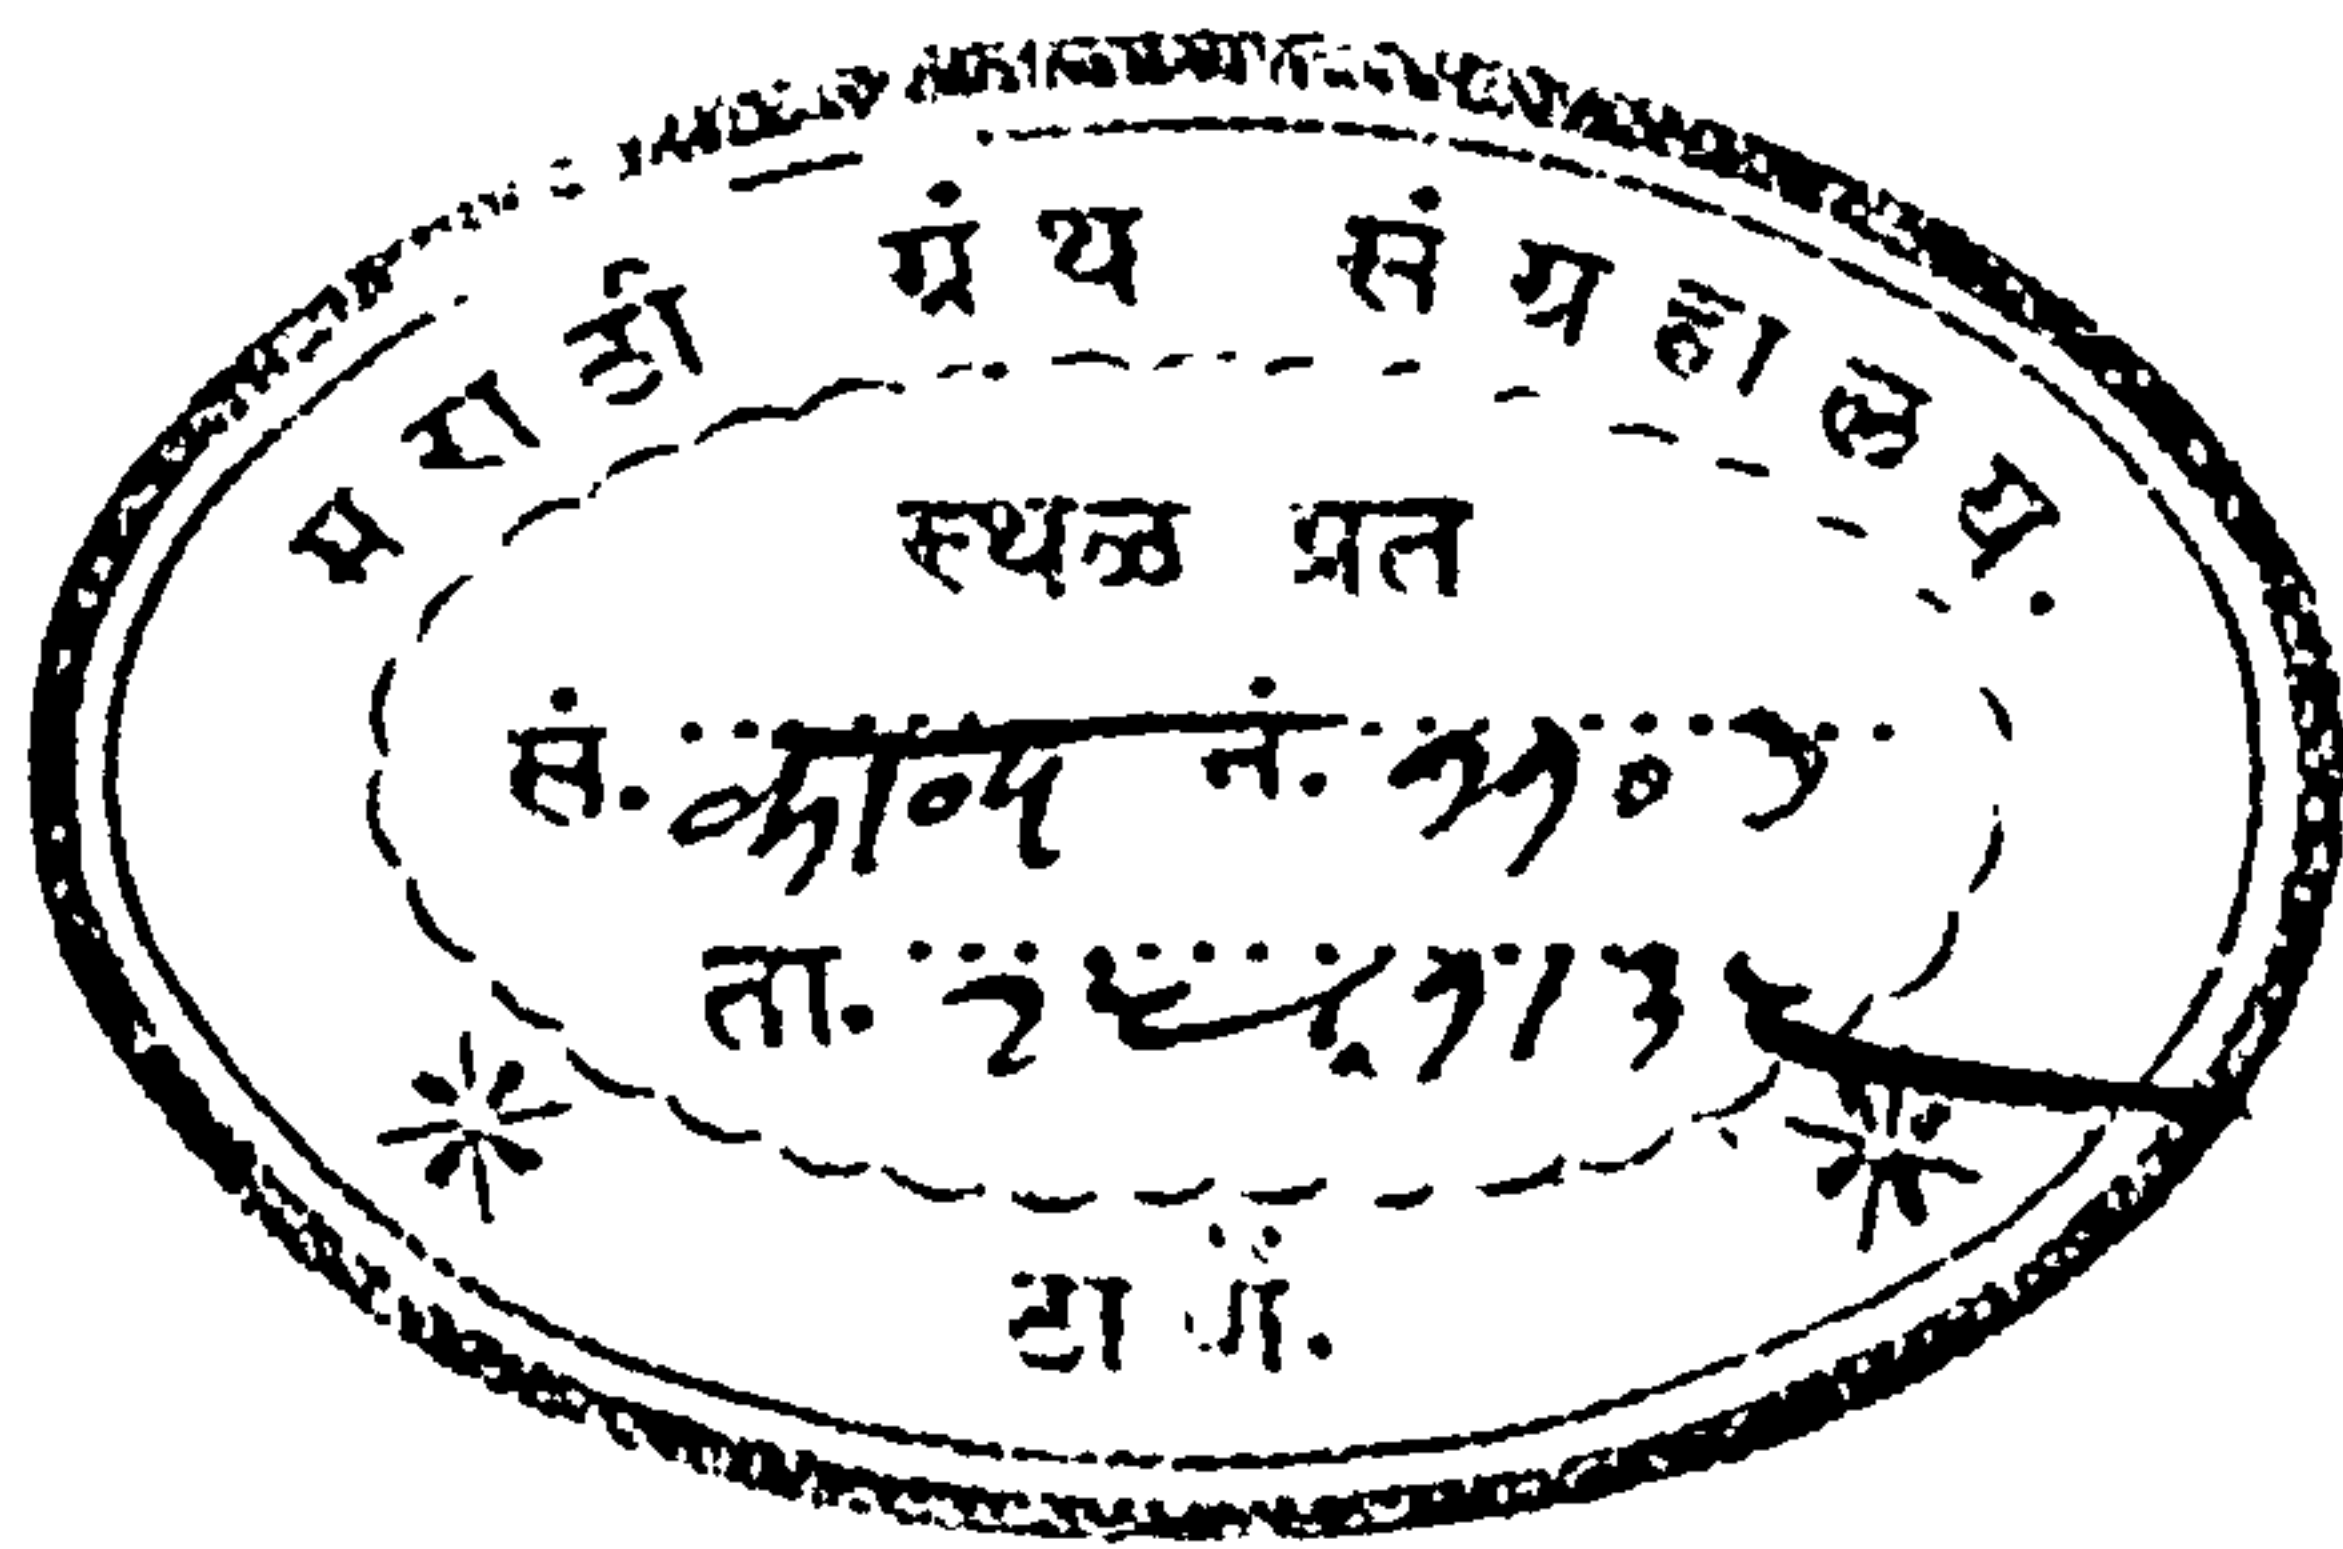 मराठी ग्रंथ संग्रहालय.
स्थळ प्रत
सं. काव्य नं.
ता.
ठाणें.